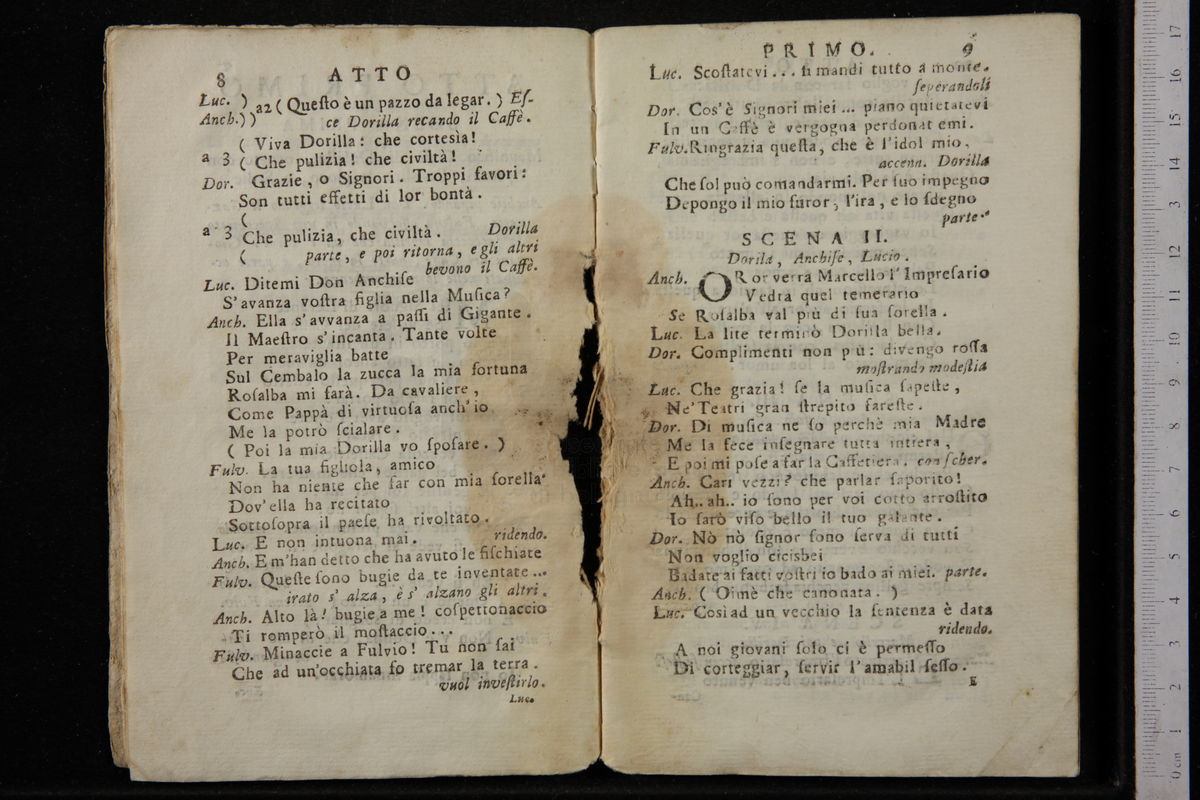 8 ATTO
Luc. ) a2 ( Queſto è un pazzo da legar. ) Eſ-
Anch. ) ) ce Dorilla recando il Caffè.
( Viva Dorilla: che cortesìa!
a 3 ( Che pulizia! che civiltà!
Dor. Grazie, o Signori. Troppi favori:
Son tutti effetti di lor bontà.
(
a 3 Che pulizia, che civiltà. Dorilla
( parte, e poi ritorna, e gli altri
bevono il Caffè.
Luc. Ditemi Don Anchiſe
S'avanza voſtra figlia nella Muſica?
Anch. Ella s'avvanza a paſſi di Gigante.
Il Maeſtro s'incanta. Tante volte
Per meraviglia batte
Sul Cembalo la zucca la mia fortuna
Roſalba mi farà. Da cavaliere,
Come Pappà di virtuoſa anch'io
Me la potrò ſcialare.
( Poi la mia Dorilla vo ſpoſare. )
Fulv. La tua figliola, amico
Non ha niente che far con mia ſorella
Dov'ella ha recitato
Sottoſopra il paeſe ha rivoltato.
Luc. E non intuona mai. ridendo.
Anch. E m'han detto che ha avuto le fiſchiate
Fulv. Queſte ſono bugie da te inventate...
irato s' alza, e s' alzano gli altri.
Anch. Alto là! bugie a me! coſpettonaccio
Ti romperò il moſtaccio...
Fulv. Minaccie a Fulvio! Tu non ſai
Che ad un'occhiata fo tremar la terra.
vuol inveſtirlo.
Luc.
PRIMO. 9
Luc. Scoſtatevi... ſi mandi tutto a monte.
ſeperandoli
Dor. Cos'è Signori miei... piano quietatevi
In un Caffè è vergogna perdonatemi.
Fulv. Ringrazia queſta, che è l'idol mio,
accenn. Dorilla
Che ſol può comandarmi. Per ſuo impegno
Depongo il mio furor, l'ira, e lo ſdegno
parte.
SCENA II.
Dorila, Anchiſe, Lucio.
Anch. OR or verrà Marcello l'Impreſario
Vedrà quel temerario
Se Roſalba val più di ſua ſorella.
Luc. La lite terminò Dorilla bella.
Dor. Complimenti non più: divengo roſſa
moſtrando modeſtia
Luc. Che grazia! ſe la muſica ſapeſte,
Ne' Teatri gran ſtrepito fareſte.
Dor. Di muſica ne ſo perchè mia Madre
Me la fece inſegnare tutta intiera,
E poi mi poſe a far la Caffetiera. con ſcher.
Anch. Cari vezzi? che parlar ſaporito!
Ah.. ah.. io ſono per voi cotto arroſtito
Io ſarò viſo bello il tuo galante.
Dor. Nò nò ſignor ſono ſerva di tutti
Non voglio cicisbei
Badate ai fatti voſtri io bado ai miei. parte.
Anch. ( Oimè che canonata. )
Luc. Così ad un vecchio la ſentenza è data
ridendo.
A noi giovani ſolo ci è permeſſo
Di corteggiar, ſervir l'amabil ſeſſo.
E